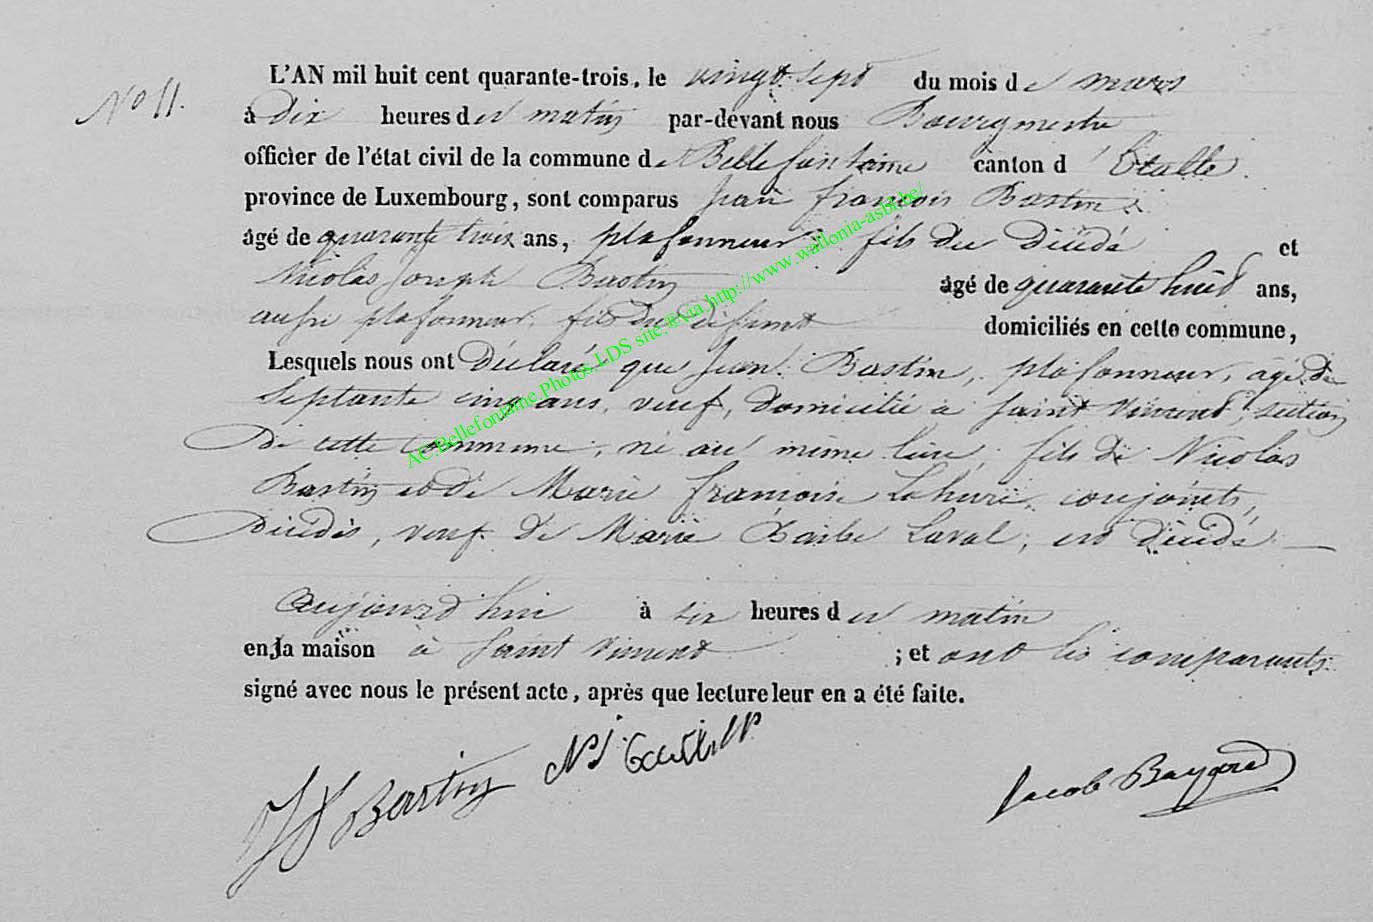 N° 11.
L'AN mil huit cent quarante-trois, le vingt sept du mois de mars
à dix heures du matin par-devant nous Bourgmestre
officier de l'état civil de la commune de Bellefontaine canton d'Etalle
province de Luxembourg, sont comparus Jean françois Bastin
âgé de quarante trois ans, plafonneur, fils du décédé et
Nicolas Joseph Bastin âgé de quarante huit ans,
aussi plafonneur, fils du défunt domiciliés en cette commune,
Lesquels nous ont déclaré que Jean Bastin, plafonneur, âgé de
septante cinq ans, veuf, domicilié à Saint Vincent, section
de cette commune, né au même lieu, fils de Nicolas
Bastin et de Marie françoise Lahure, conjoints,
décédés, veuf de Marie Barbe Laval, est décédé
aujourd'hui à six heures du matin
en la maison à Saint Vincent ; et ont les comparants
signé avec nous le présent acte, après que lecture leur en a été faite.
JF Bastin NJ Jacob Bayard
AC.Bellefontaine Photos LDS site.®via http://www.wallonia-asbl.be/